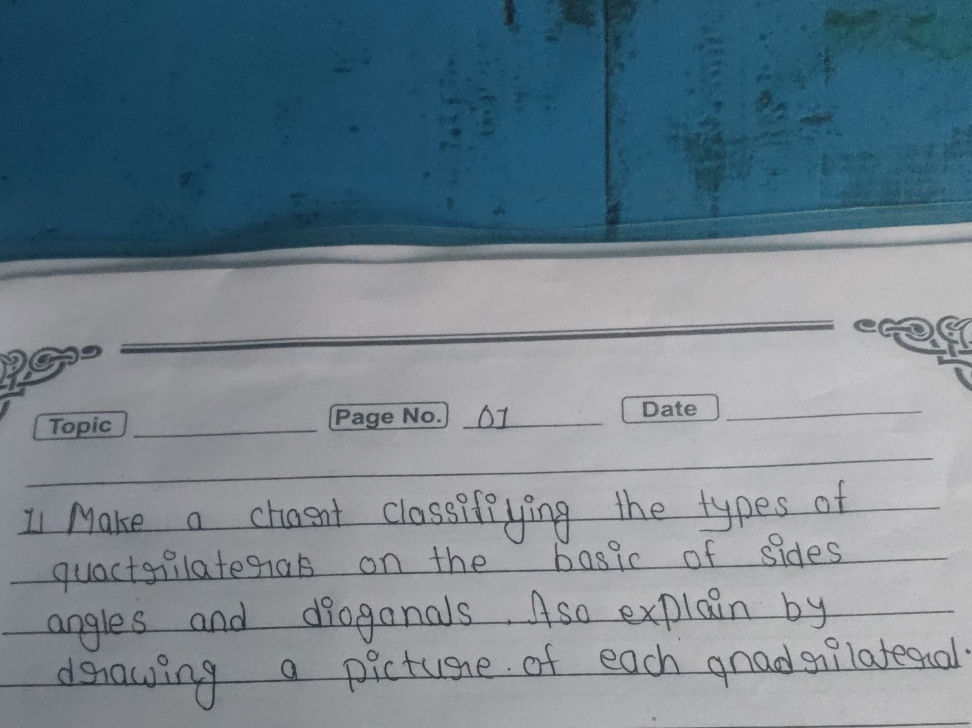 Topic Page No. 01 Date
1] Make a chart classifiying the types of
quactrilaterals on the basic of sides
angles and dioganals. Aso explain by
drawing a picture. of each qnadrilateral.